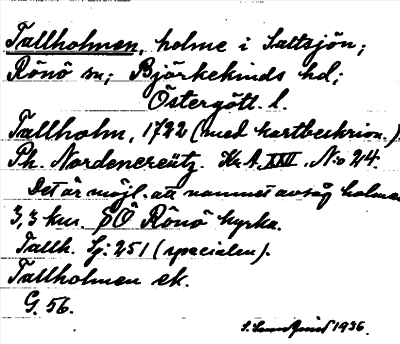 Tallholmen, holme i Saltsjön;
Rönö sn; Björkekinds hd;
Östergötl. l.
Tallholm, 1722 (med kartbeskrivn.)
Ph. Nordencreütz. Kr. A. XXII. No 24.
Det är möjl. att namnet avsåg holmen
3,3 km. SÖ Rönö kyrka.
Tallh. Sj: 251 (specialen).
Tallholmen ek.
G. 56.
S. Sundquist 1936.